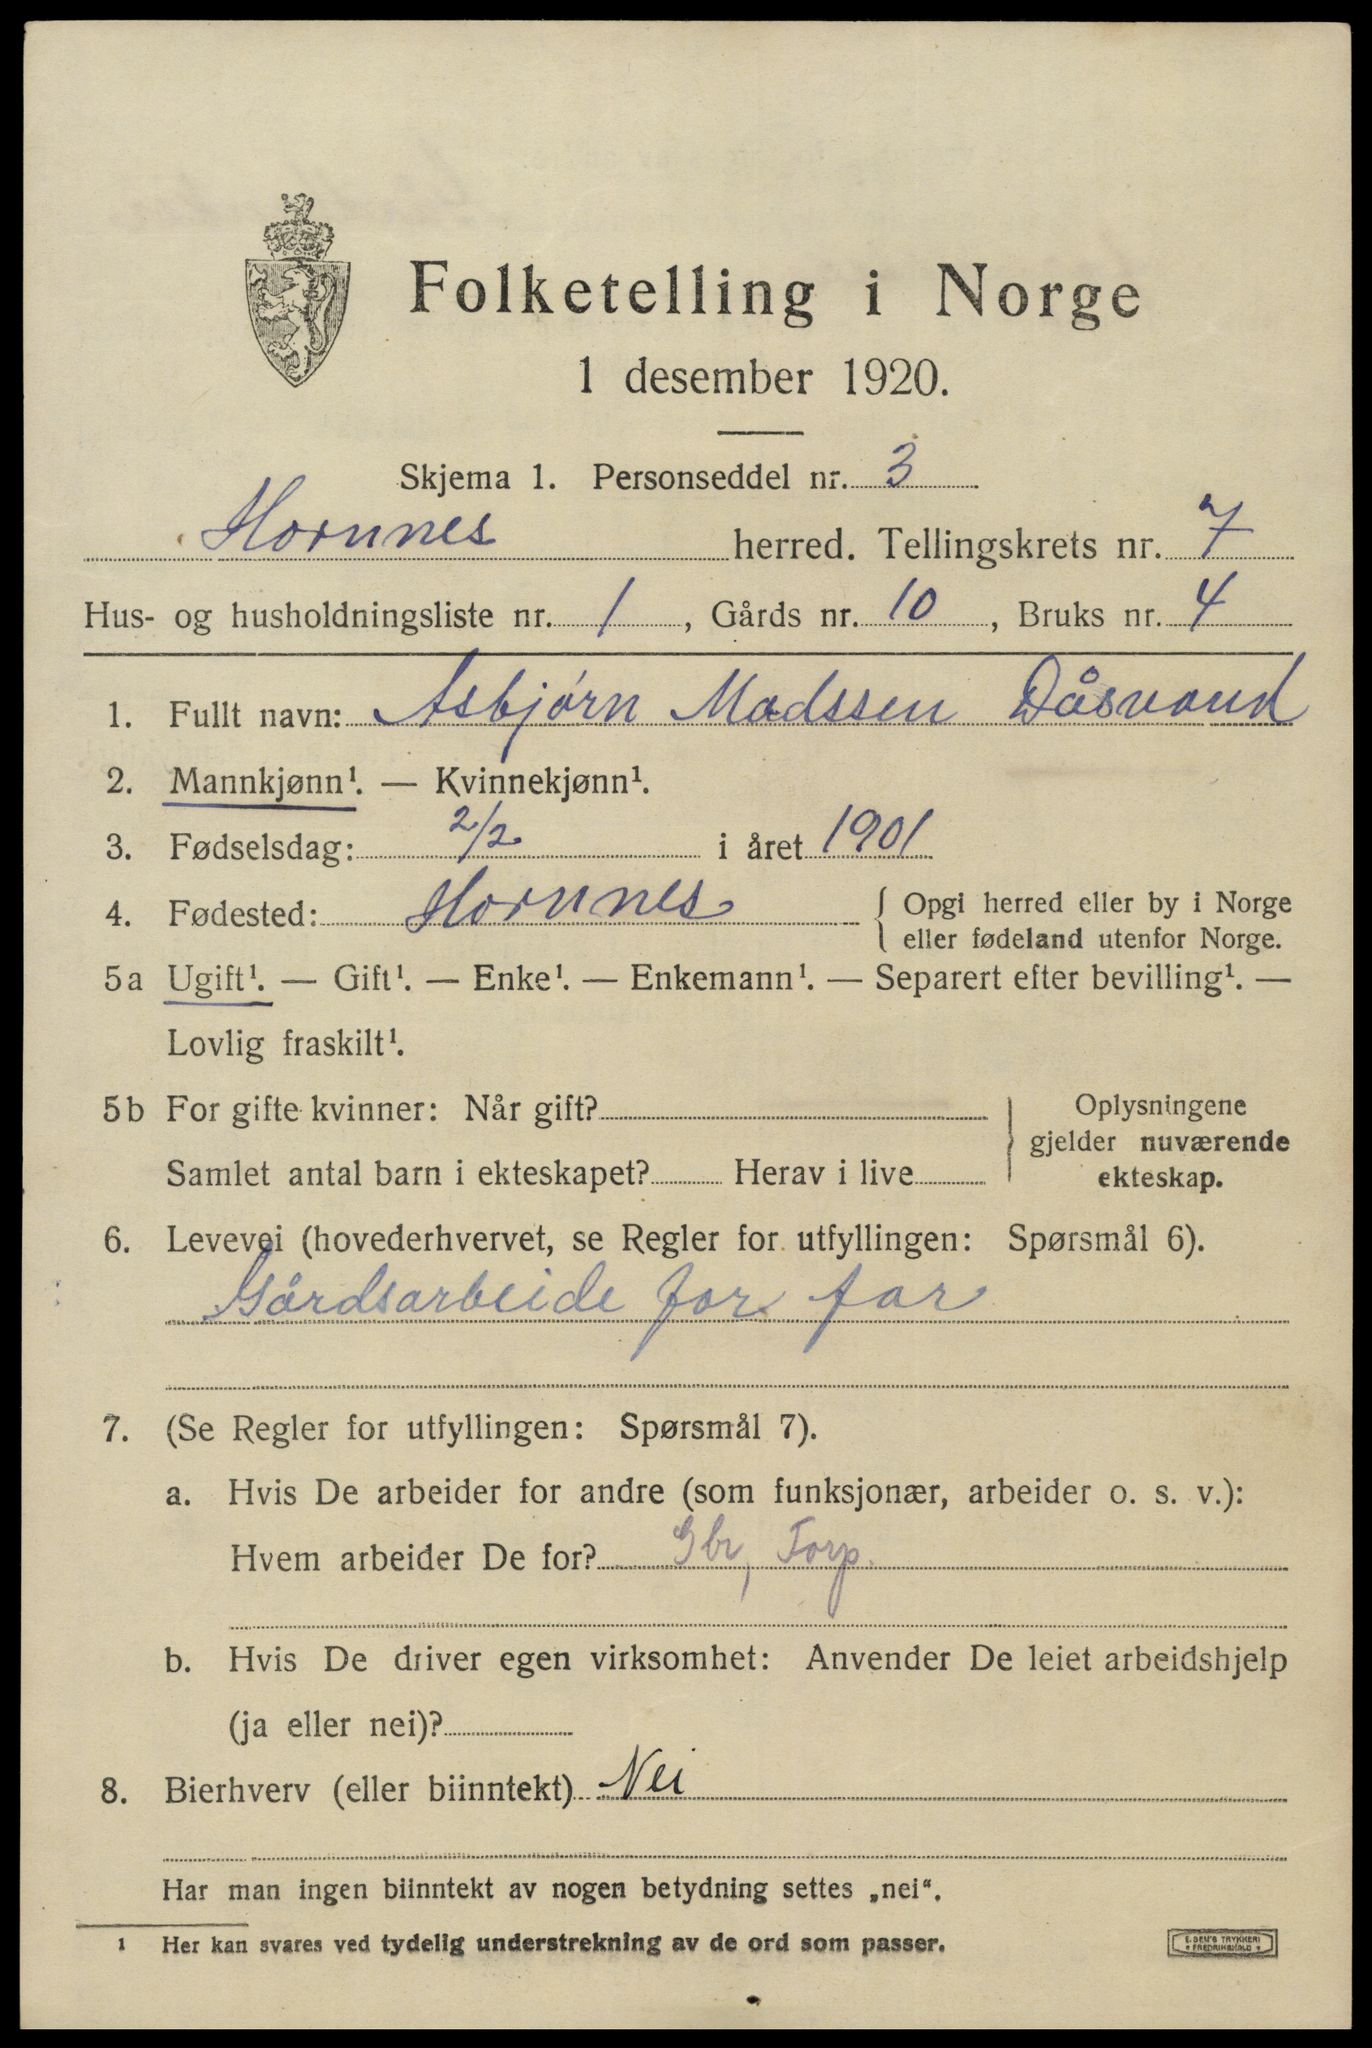 Folketelling i Norge
1 desember 1920.
Skjema 1. Personseddel nr. 3
Hornnes herred. Tellingskrets nr. 7
Hus- og husholdningsliste nr. 1, Gårds nr. 10, Bruks nr. 4
1. Fullt navn: Asbjørn Madssen Dåsvand
2. Mannkjønn¹. — Kvinnekjønn¹.
3. Fødselsdag: 2/2 i året 1901
4. Fødested: Hornnes { Opgi herred eller by i Norge
eller fødeland utenfor Norge.
5a Ugift¹. — Gift¹. — Enke¹. — Enkemann¹. — Separert efter bevilling¹. —
Lovlig fraskilt¹.
5b For gifte kvinner: Når gift?
Samlet antal barn i ekteskapet? Herav i live
} Oplysningene
gjelder nuværende
ekteskap.
6. Levevei (hovederhvervet, se Regler for utfyllingen: Spørsmål 6).
Gårdsarbeide for far
7. (Se Regler for utfyllingen: Spørsmål 7).
a. Hvis De arbeider for andre (som funksjonær, arbeider o. s. v.):
Hvem arbeider De for? Gbr, Torp.
b. Hvis De driver egen virksomhet: Anvender De leiet arbeidshjelp
(ja eller nei)?
8. Bierhverv (eller biinntekt) Nei
Har man ingen biinntekt av nogen betydning settes „nei“.
¹ Her kan svares ved tydelig understrekning av de ord som passer.
E. SEM'S TRYKKERI
FREDRIKSHALD